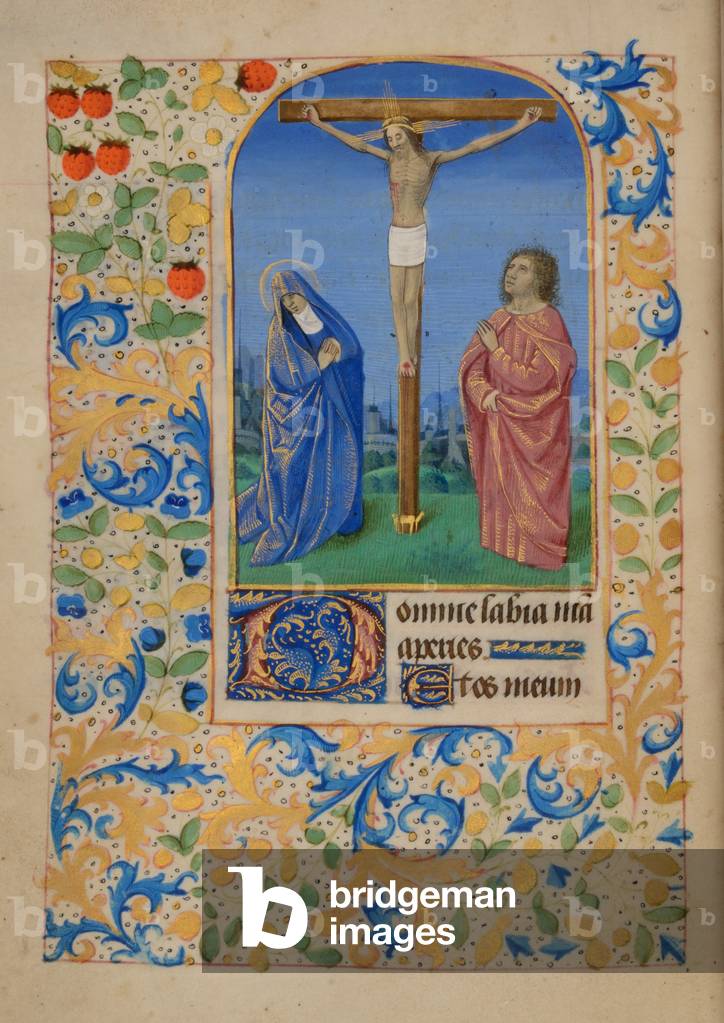 Domine labia mea
aperies
Et os meum
bridgeman
images